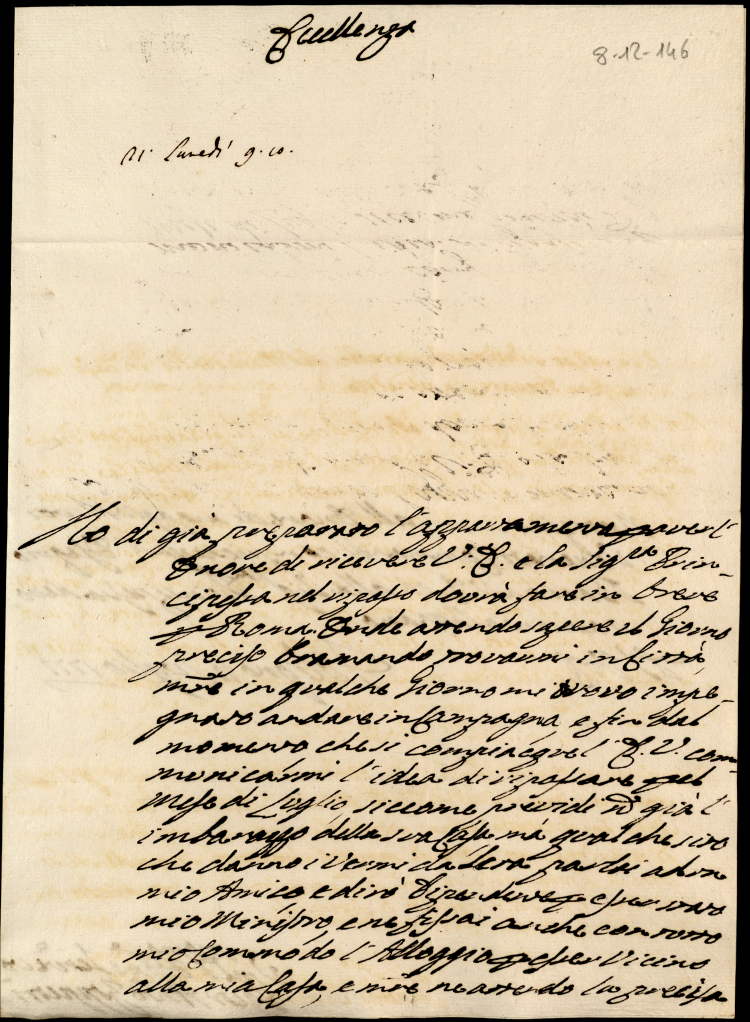 Eccellenza
8-12-146
R. Lunedì 9. 10.
Ho di già preparato l'appartamento per aver l'
Onore di ricevere V. E. e la Sig.ra Prin=
cipessa nel ripasso dovrà fare in breve
p Roma. Onde attendo sapere il Giorno
preciso bramando trovarmi in Città,
mre in qualche Giorno mi trovo impe=
gnato andare in Campagna e fin dal
momento che si compiacque l' E. V. com=
municarmi l'idea di ripassare nel
Mese di Luglio siccome previdi già l'
imbarazzo della sua Casa mà qualche sito
che danno i Vermi da Seta parlai ad un
mio Amico e dirò Dipendente p esser stato
mio Ministro, e ne fissai anche con tutto
mio Commodo l'Alloggio p esser Vicino
alla mia Casa, e mre ne attendo la precisa